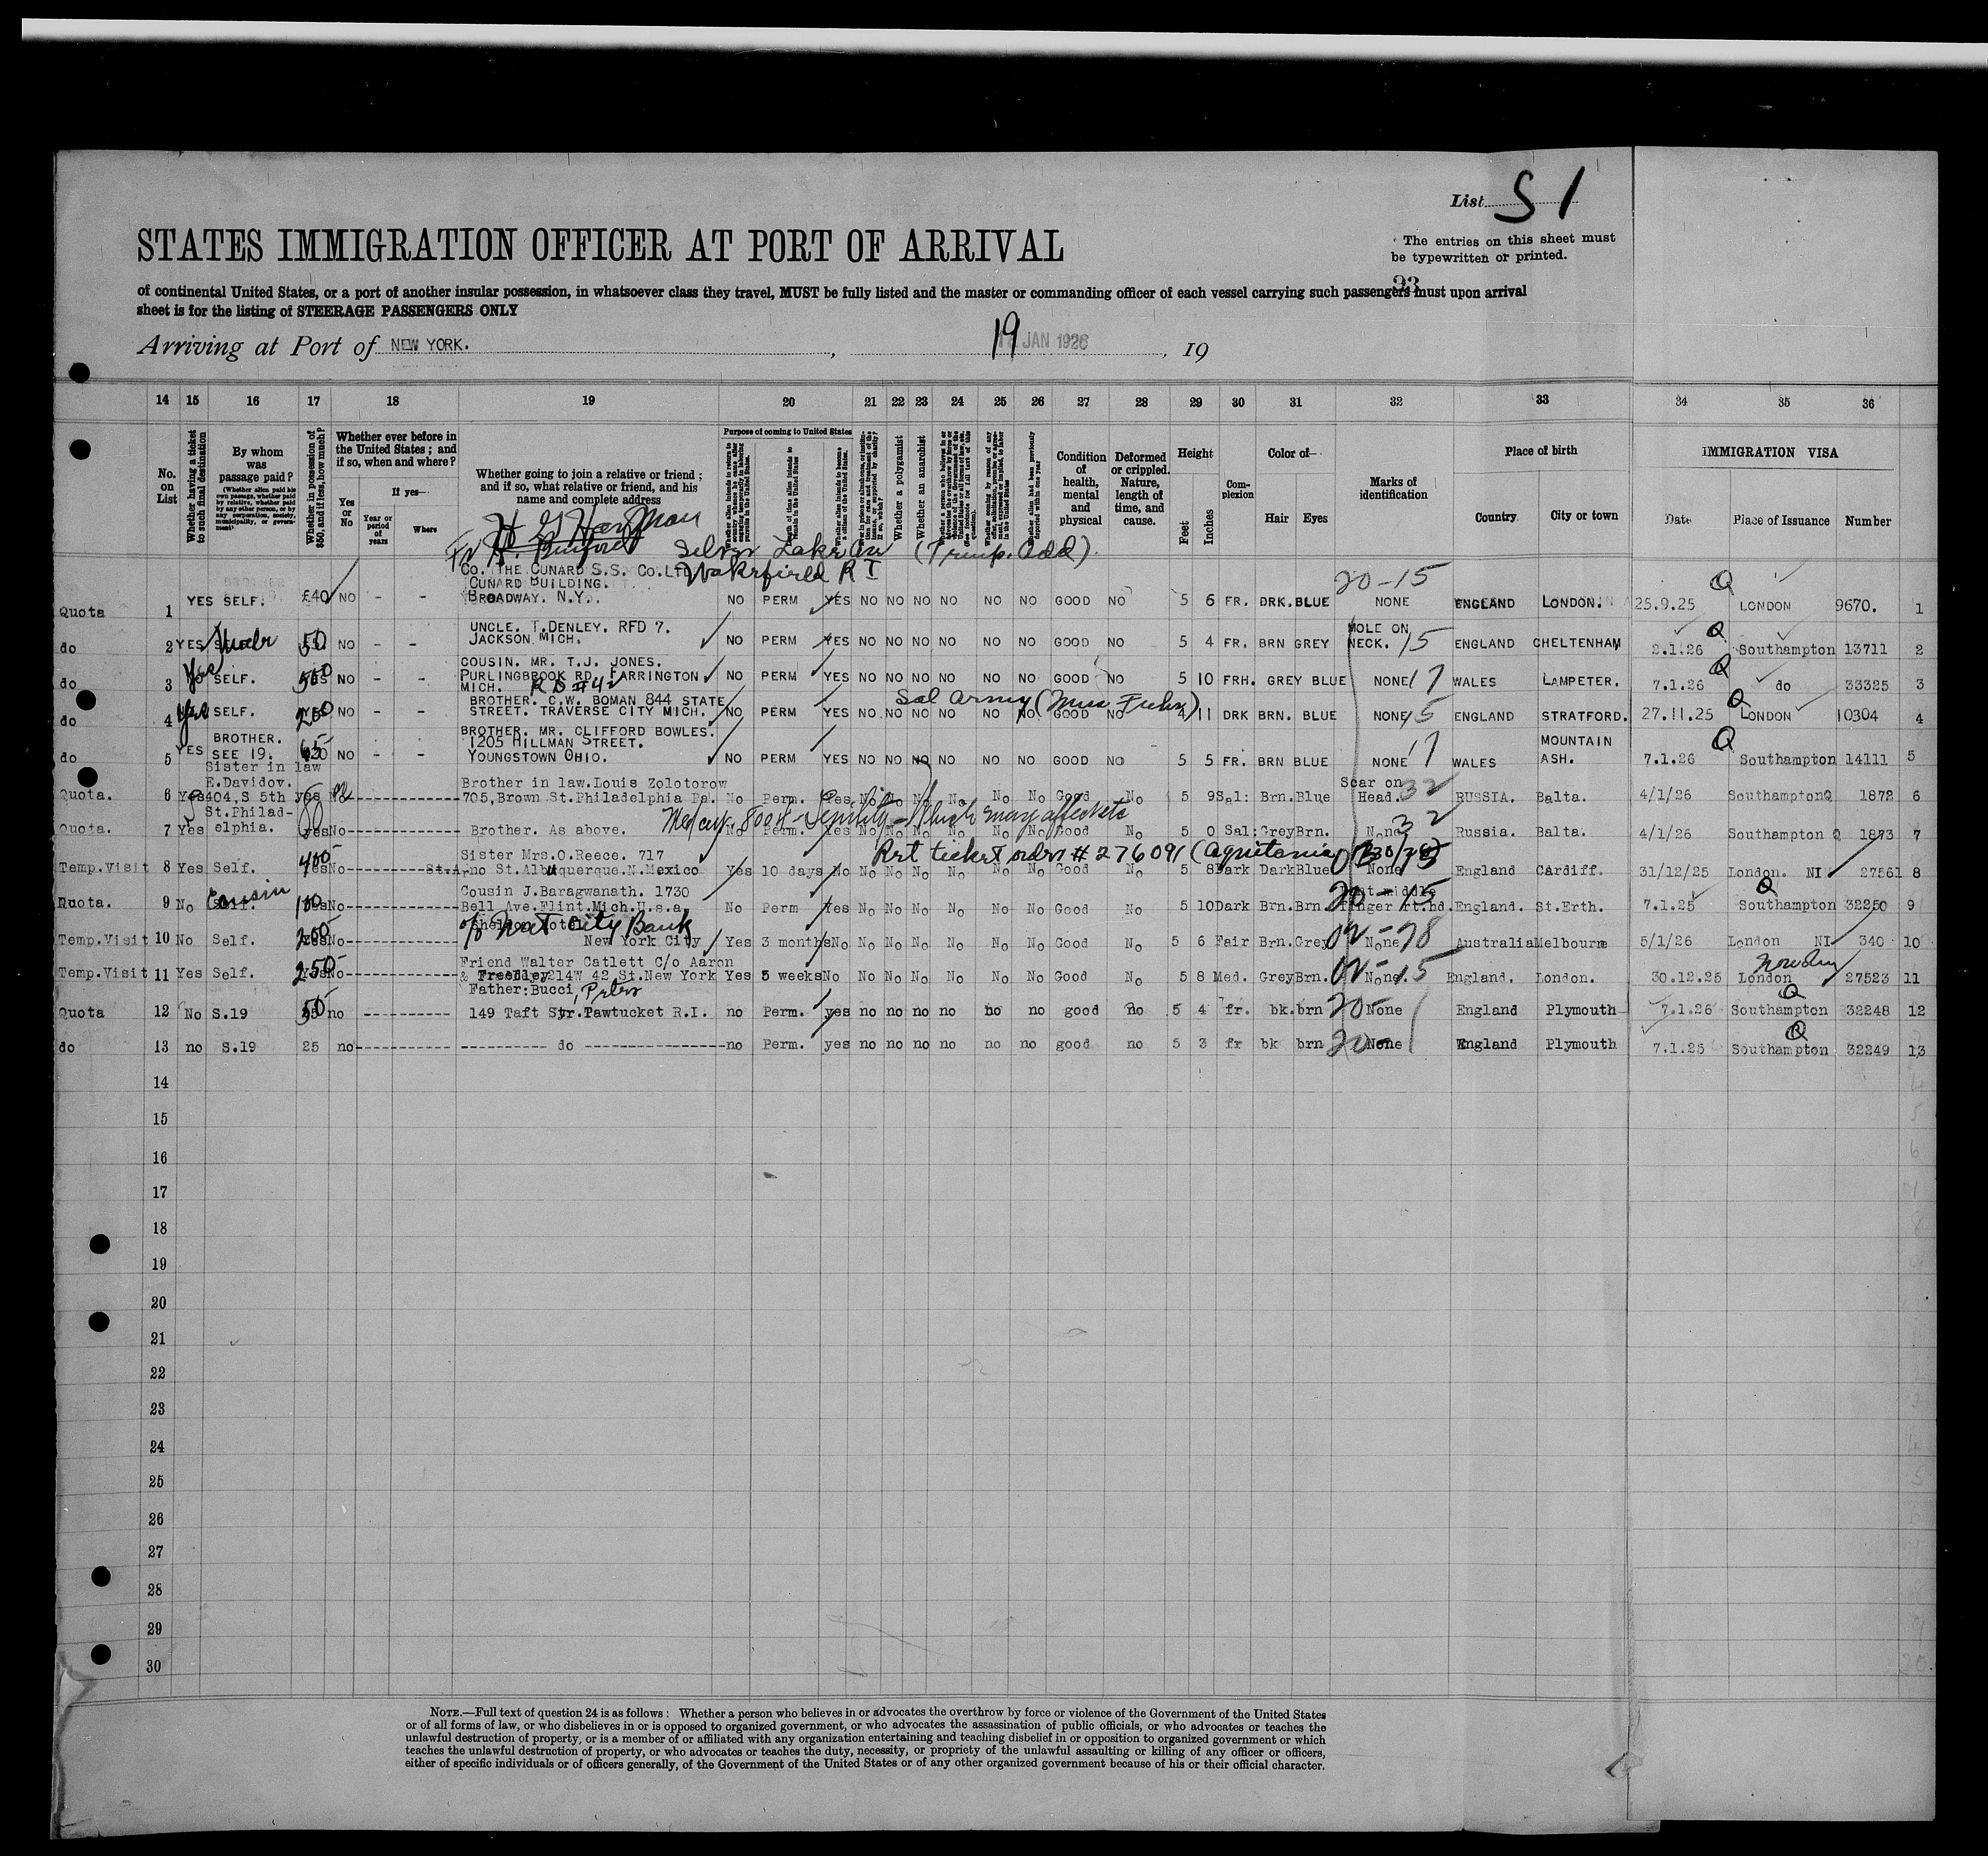 List S1
STATES IMMIGRATION OFFICER AT PORT OF ARRIVAL
The entries on this sheet must
be typewritten or printed.
of continental United States, or a port of another insular possession, in whatsoever class they travel, MUST be fully listed and the master or commanding officer of each vessel carrying such passengers must upon arrival
sheet is for the listing of STEERAGE PASSENGERS ONLY
Arriving at Port of NEW YORK. , 19 JAN 1926 , 19
14 15 16 17 18 19 20 21 22 23 24 25 26 27 28 29 30 31 32 33 34 35 36
No. on List
Whether having a ticket to such final destination
By whom was passage paid?
(Whether alien paid his own passage, whether paid by relative, whether paid by any other person, or by any corporation, society, municipality, or government)
Whether in possession of $50, and if less, how much?
Whether ever before in the United States; and if so, when and where?
Yes or No
If yes—
Year or period of years
Where
Whether going to join a relative or friend; and if so, what relative or friend, and his name and complete address
Purpose of coming to United States
Whether a polygamist
Whether an anarchist
Condition of health, mental and physical
Deformed or crippled. Nature, length of time, and cause.
Height
Feet
Inches
Complexion
Color of—
Hair Eyes
Marks of identification
Place of birth
Country. City or town
IMMIGRATION VISA
Date Place of Issuance Number
Silver Lake Ave (Temp. Add).
Wakefield R I
Co. THE CUNARD S.S. Co. LTD
CUNARD BUILDING. 20-15 Q
Quota 1 YES SELF. £40 NO - - BROADWAY. N.Y. NO PERM YES NO NO NO NO NO NO GOOD NO 5 6 FR. DRK. BLUE NONE ENGLAND LONDON. 25.9.25 LONDON 9670. 1
UNCLE. T. DENLEY. RFD 7. MOLE ON Q
do 2 YES 50 NO - - JACKSON MICH. NO PERM YES NO NO NO NO NO NO GOOD NO 5 4 FR. BRN GREY NECK. 15 ENGLAND CHELTENHAM 2.1.26 Southampton 13711 2
COUSIN. MR. T.J. JONES. Q
do 3 Yes SELF. NO - - PURLINGBROOK RD. FARRINGTON NO PERM YES NO NO NO NO NO NO GOOD NO 5 10 FRH. GREY BLUE NONE 17 WALES LAMPETER. 7.1.26 do 33325 3
MICH. R D #42
BROTHER. C.W. BOMAN 844 STATE Sal Army Q
do 4 Yes SELF. NO - - STREET. TRAVERSE CITY MICH. NO PERM YES NO NO NO NO NO NO GOOD NO 11 DRK BRN. BLUE NONE 15 ENGLAND STRATFORD. 27.11.25 LONDON 10304 4
BROTHER. BROTHER. MR. CLIFFORD BOWLES. MOUNTAIN Q
1205 HILLMAN STREET.
do 5 YES SEE 19. NO - - YOUNGSTOWN OHIO. NO PERM YES NO NO NO NO NO NO GOOD NO 5 5 FR. BRN BLUE NONE 17 WALES ASH. 7.1.26 Southampton 14111 5
Sister in law
E.Davidov. Brother in law. Louis Zolotorow Scar on
Quota. 6 Yes 404, S 5th yes 705, Brown St. Philadelphia Pa. No Perm. Yes No No No No No No Good No 5 9 Sal: Brn. Blue Head. 32 RUSSIA. Balta. 4/1/26 Southampton Q 1872 6
St. Phila-
Quota. 7 Yes elphia. yes No Brother. As above. No Perm. Yes No No No No No No Good No 5 0 Sal: Grey Brn. None 32 Russia. Balta. 4/1/26 Southampton Q 1873 7
Sister Mrs. O. Reece. 717 Ret ticket order # 276091 (Aquitania
Temp. Visit 8 Yes Self. Yes No St. Albuquerque. N. Mexico Yes 10 days No No No No No No No Good No 5 8 Dark Dark Blue None England Cardiff. 31/12/25 London. NI 27561 8
Cousin Cousin J. Baragwanath. 1730 Q
Quota. 9 No 100 No Bell Ave. Flint. Mich. U.s.a. No Perm Yes No No No No No No Good No 5 10 Dark Brn. Brn. finger rt. hd. England. St. Erth. 7.1.25 Southampton 32250 9
Nat City Bank
Temp. Visit 10 No Self. 200 No New York City Yes 3 months No No No No No No No Good No 5 6 Fair Brn. Grey None Australia Melbourne 5/1/26 London NI 340 10
Friend Walter Catlett C/o Aaron
Temp. Visit 11 Yes Self. 250 No & Freedley 214W 42 St. New York Yes 5 weeks No No No No No No No Good No 5 8 Med. Grey Brn. None. 15 England. London. 30.12.25 London 27523 11
Father: Bucci, Peter Q
Quota 12 No S.19 50 no 149 Taft Str. Pawtucket R.I. no Perm. yes no no no no no no good no 5 4 fr. bk. brn 20 None England Plymouth 7.1.26 Southampton 32248 12
Q
do 13 no S.19 25 no do no Perm. yes no no no no no no good no 5 3 fr bk brn 20 None England Plymouth 7.1.25 Southampton 32249 13
14
15
16
17
18
19
20
21
22
23
24
25
26
27
28
29
30
NOTE.—Full text of question 24 is as follows: Whether a person who believes in or advocates the overthrow by force or violence of the Government of the United States
or of all forms of law, or who disbelieves in or is opposed to organized government, or who advocates the assassination of public officials, or who advocates or teaches the
unlawful destruction of property, or is a member of or affiliated with any organization entertaining and teaching disbelief in or opposition to organized government or which
teaches the unlawful destruction of property, or who advocates or teaches the duty, necessity, or propriety of the unlawful assaulting or killing of any officer or officers,
either of specific individuals or of officers generally, of the Government of the United States or of any other organized government because of his or their official character.